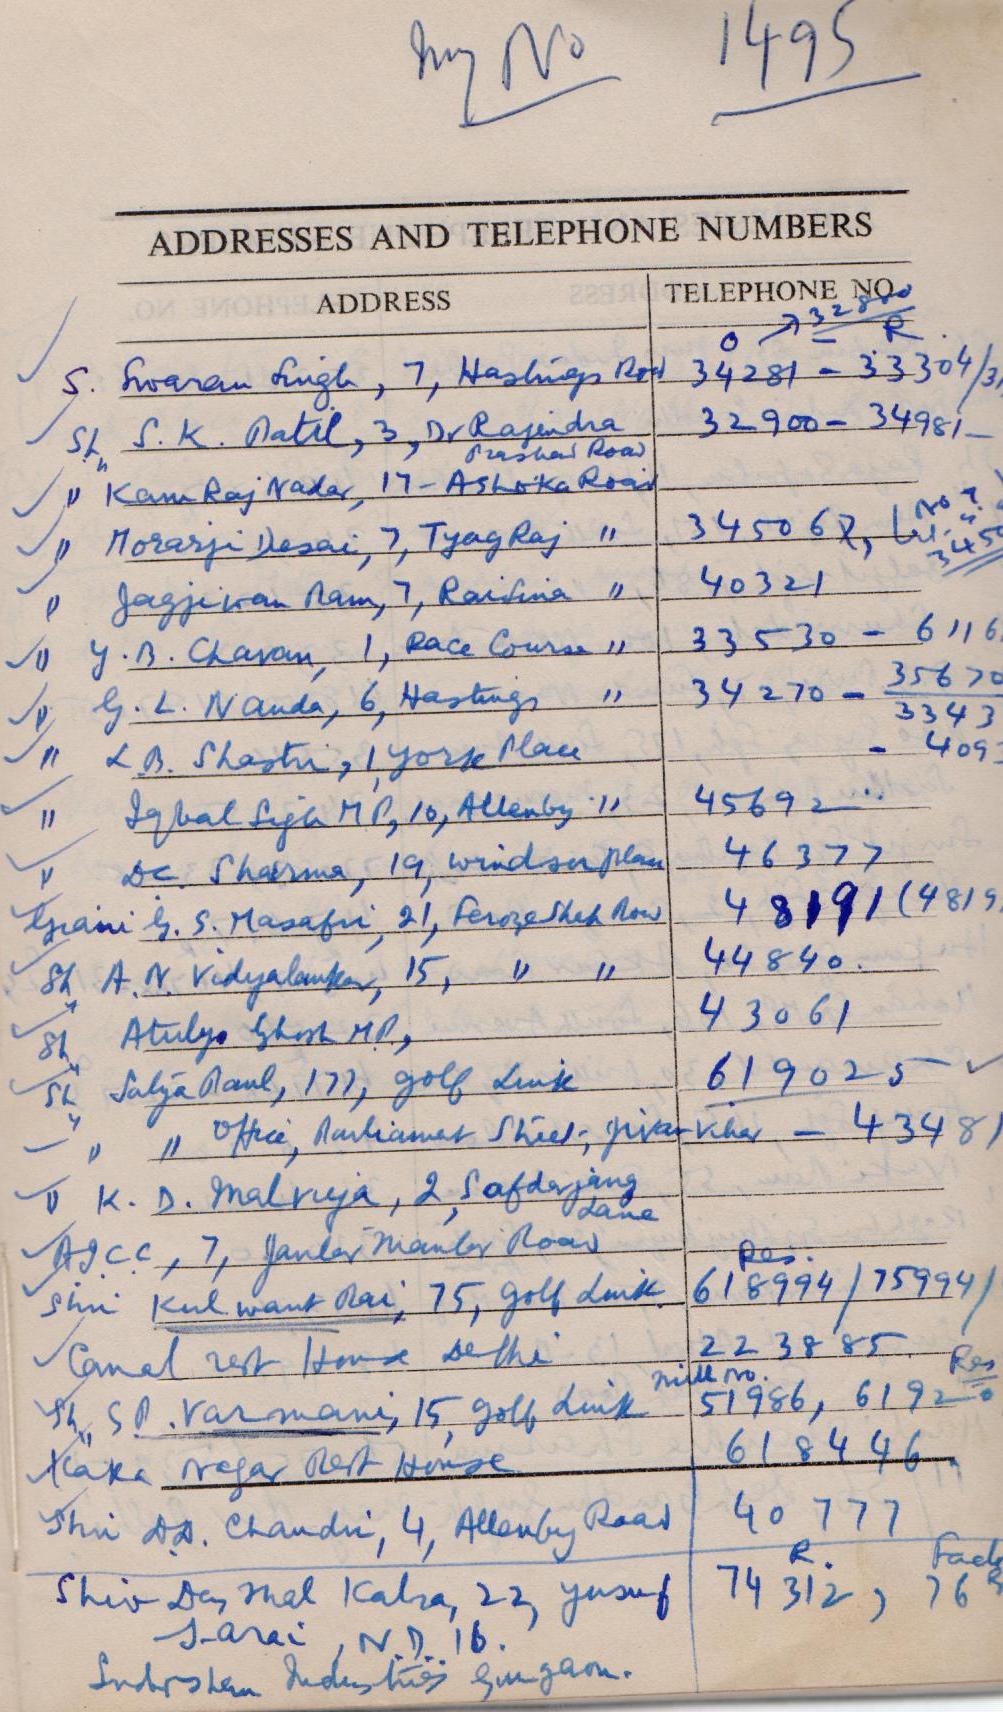 My No 1495
ADDRESSES AND TELEPHONE NUMBERS
ADDRESS TELEPHONE NO.
O → 32880 R.
S. Swaran Singh, 7, Hastings Road 34281 - 33304/3
Sh. S. K. Patil, 3, Dr Rajendra 32900 - 34981
Prashad Road
" Kam Raj Nadar, 17 - AShoka Road
" Morarji Desai, 7, Tyag Raj " 345067,
" Jagjiwan Ram, 7, Raisina " 40321
" Y. B. Chavan, 1, Race Course " 33530 - 6116
" G. L. Nanda, 6, Hastings " 34270 - 35670
3343
" L.B. Shastri, 1, York Place - 409
" Iqbal Sigh M P, 10, Allenby " 45692
" D.C. Sharma, 19, Windser place 46377
Giani G. S. Masafri, 21, Feroze Shah Row 48191 (4819
Sh A. N. Vidyalankar, 15, " " 44840.
Sh. Atulya Ghosh M.P., 43061
Sh. Satya Paul, 177, golf Link 619025
" " Office, Parliament Street, Jivan Vihar - 43481
" K. D. Malviya, 2, Safdarjang
Lane
A I C C, 7, Janter Manter Road
Res.
Shri Kulwant Rai, 75, golf Link 618994/75994/
Canal rest House Delhi 223885.
Mill No. Res
Sh. S P. Varmani, 15, golf Link 51986, 61920
Kaka Nagar Rest House 618446
Shri D.D. Chandri, 4, Allenby Road 40777
R. Fact
Shiv Das Mal Kalra, 22, Yusuf 74312, 76
Sarai, N.D. 16.
Industries Gurgaon.